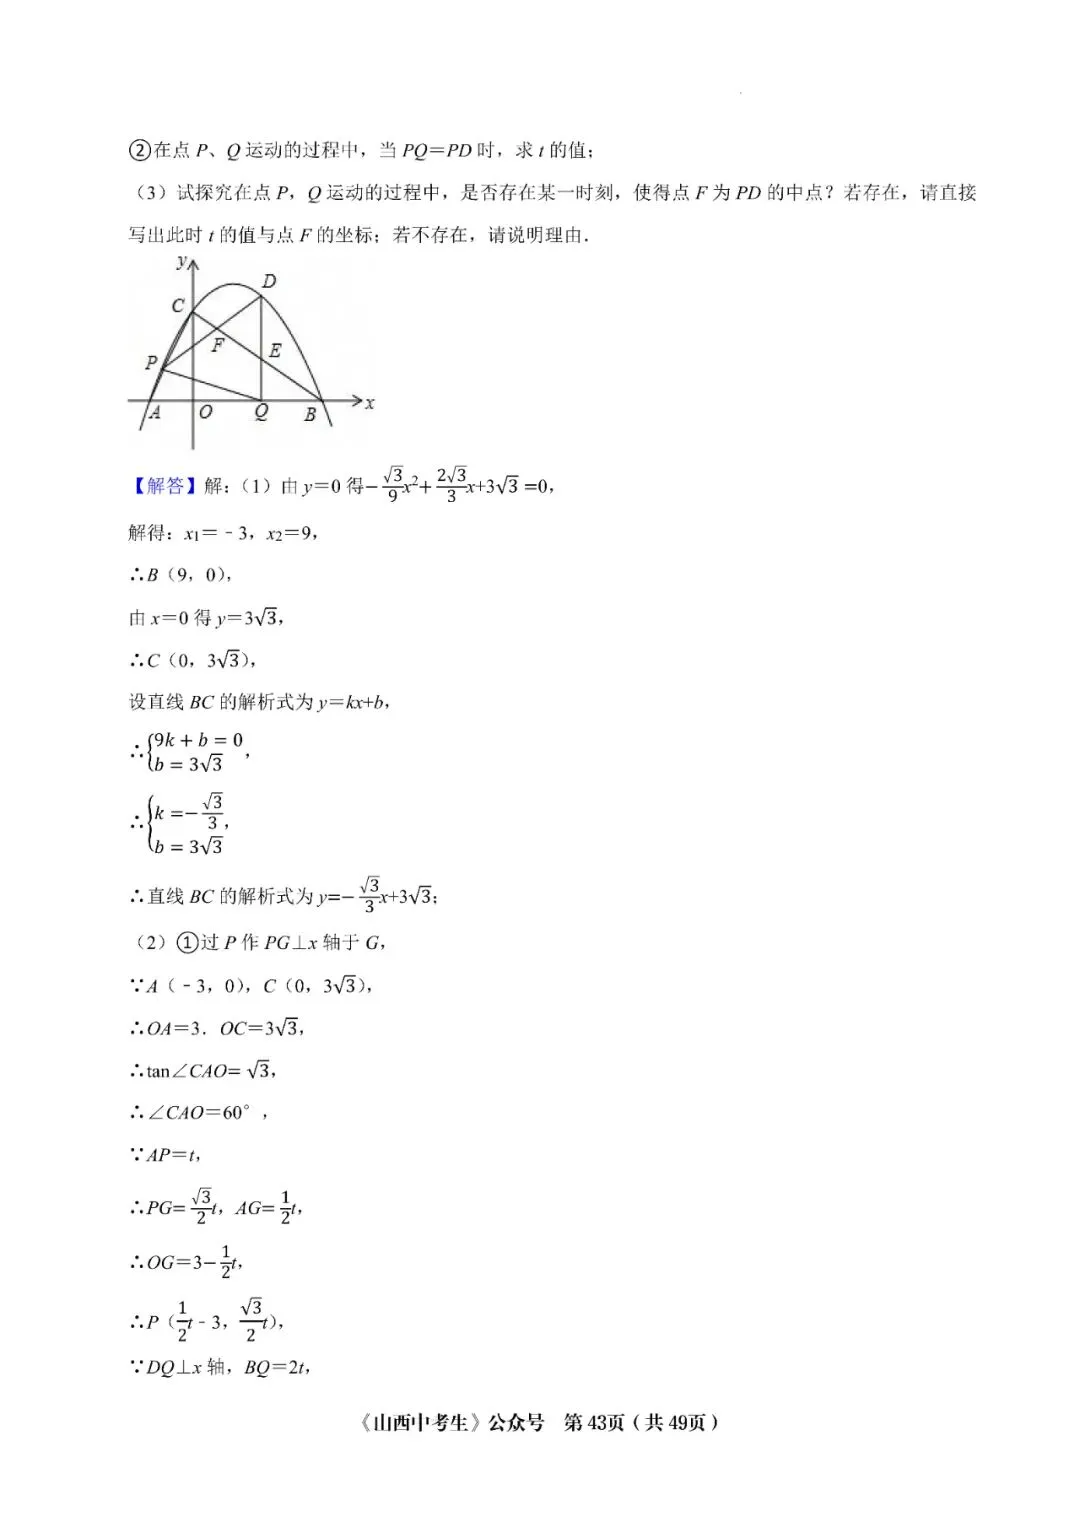 ②在点 P、Q 运动的过程中，当 PQ＝PD 时，求 t 的值；
（3）试探究在点 P，Q 运动的过程中，是否存在某一时刻，使得点 F 为 PD 的中点？若存在，请直接
写出此时 t 的值与点 F 的坐标；若不存在，请说明理由．
y
D
C
F
E
P
A
O
Q
B
x
【解答】解：（1）由 y＝0 得−√3/9x²+2√3/3x+3√3 =0，
解得：x₁＝﹣3，x₂＝9，
∴B（9，0），
由 x＝0 得 y＝3√3，
∴C（0，3√3），
设直线 BC 的解析式为 y＝kx+b，
∴{9k + b = 0
b = 3√3，
∴{k =−√3/3，
b = 3√3
∴直线 BC 的解析式为 y=−√3/3x+3√3；
（2）①过 P 作 PG⊥x 轴于 G，
∵A（﹣3，0），C（0，3√3），
∴OA＝3．OC＝3√3，
∴tan∠CAO= √3，
∴∠CAO＝60°，
∵AP＝t，
∴PG= √3/2t，AG= 1/2t，
∴OG＝3−1/2t，
∴P（1/2t﹣3，√3/2t），
∵DQ⊥x 轴，BQ＝2t，
《山西中考生》公众号 第 43页（共 49页）